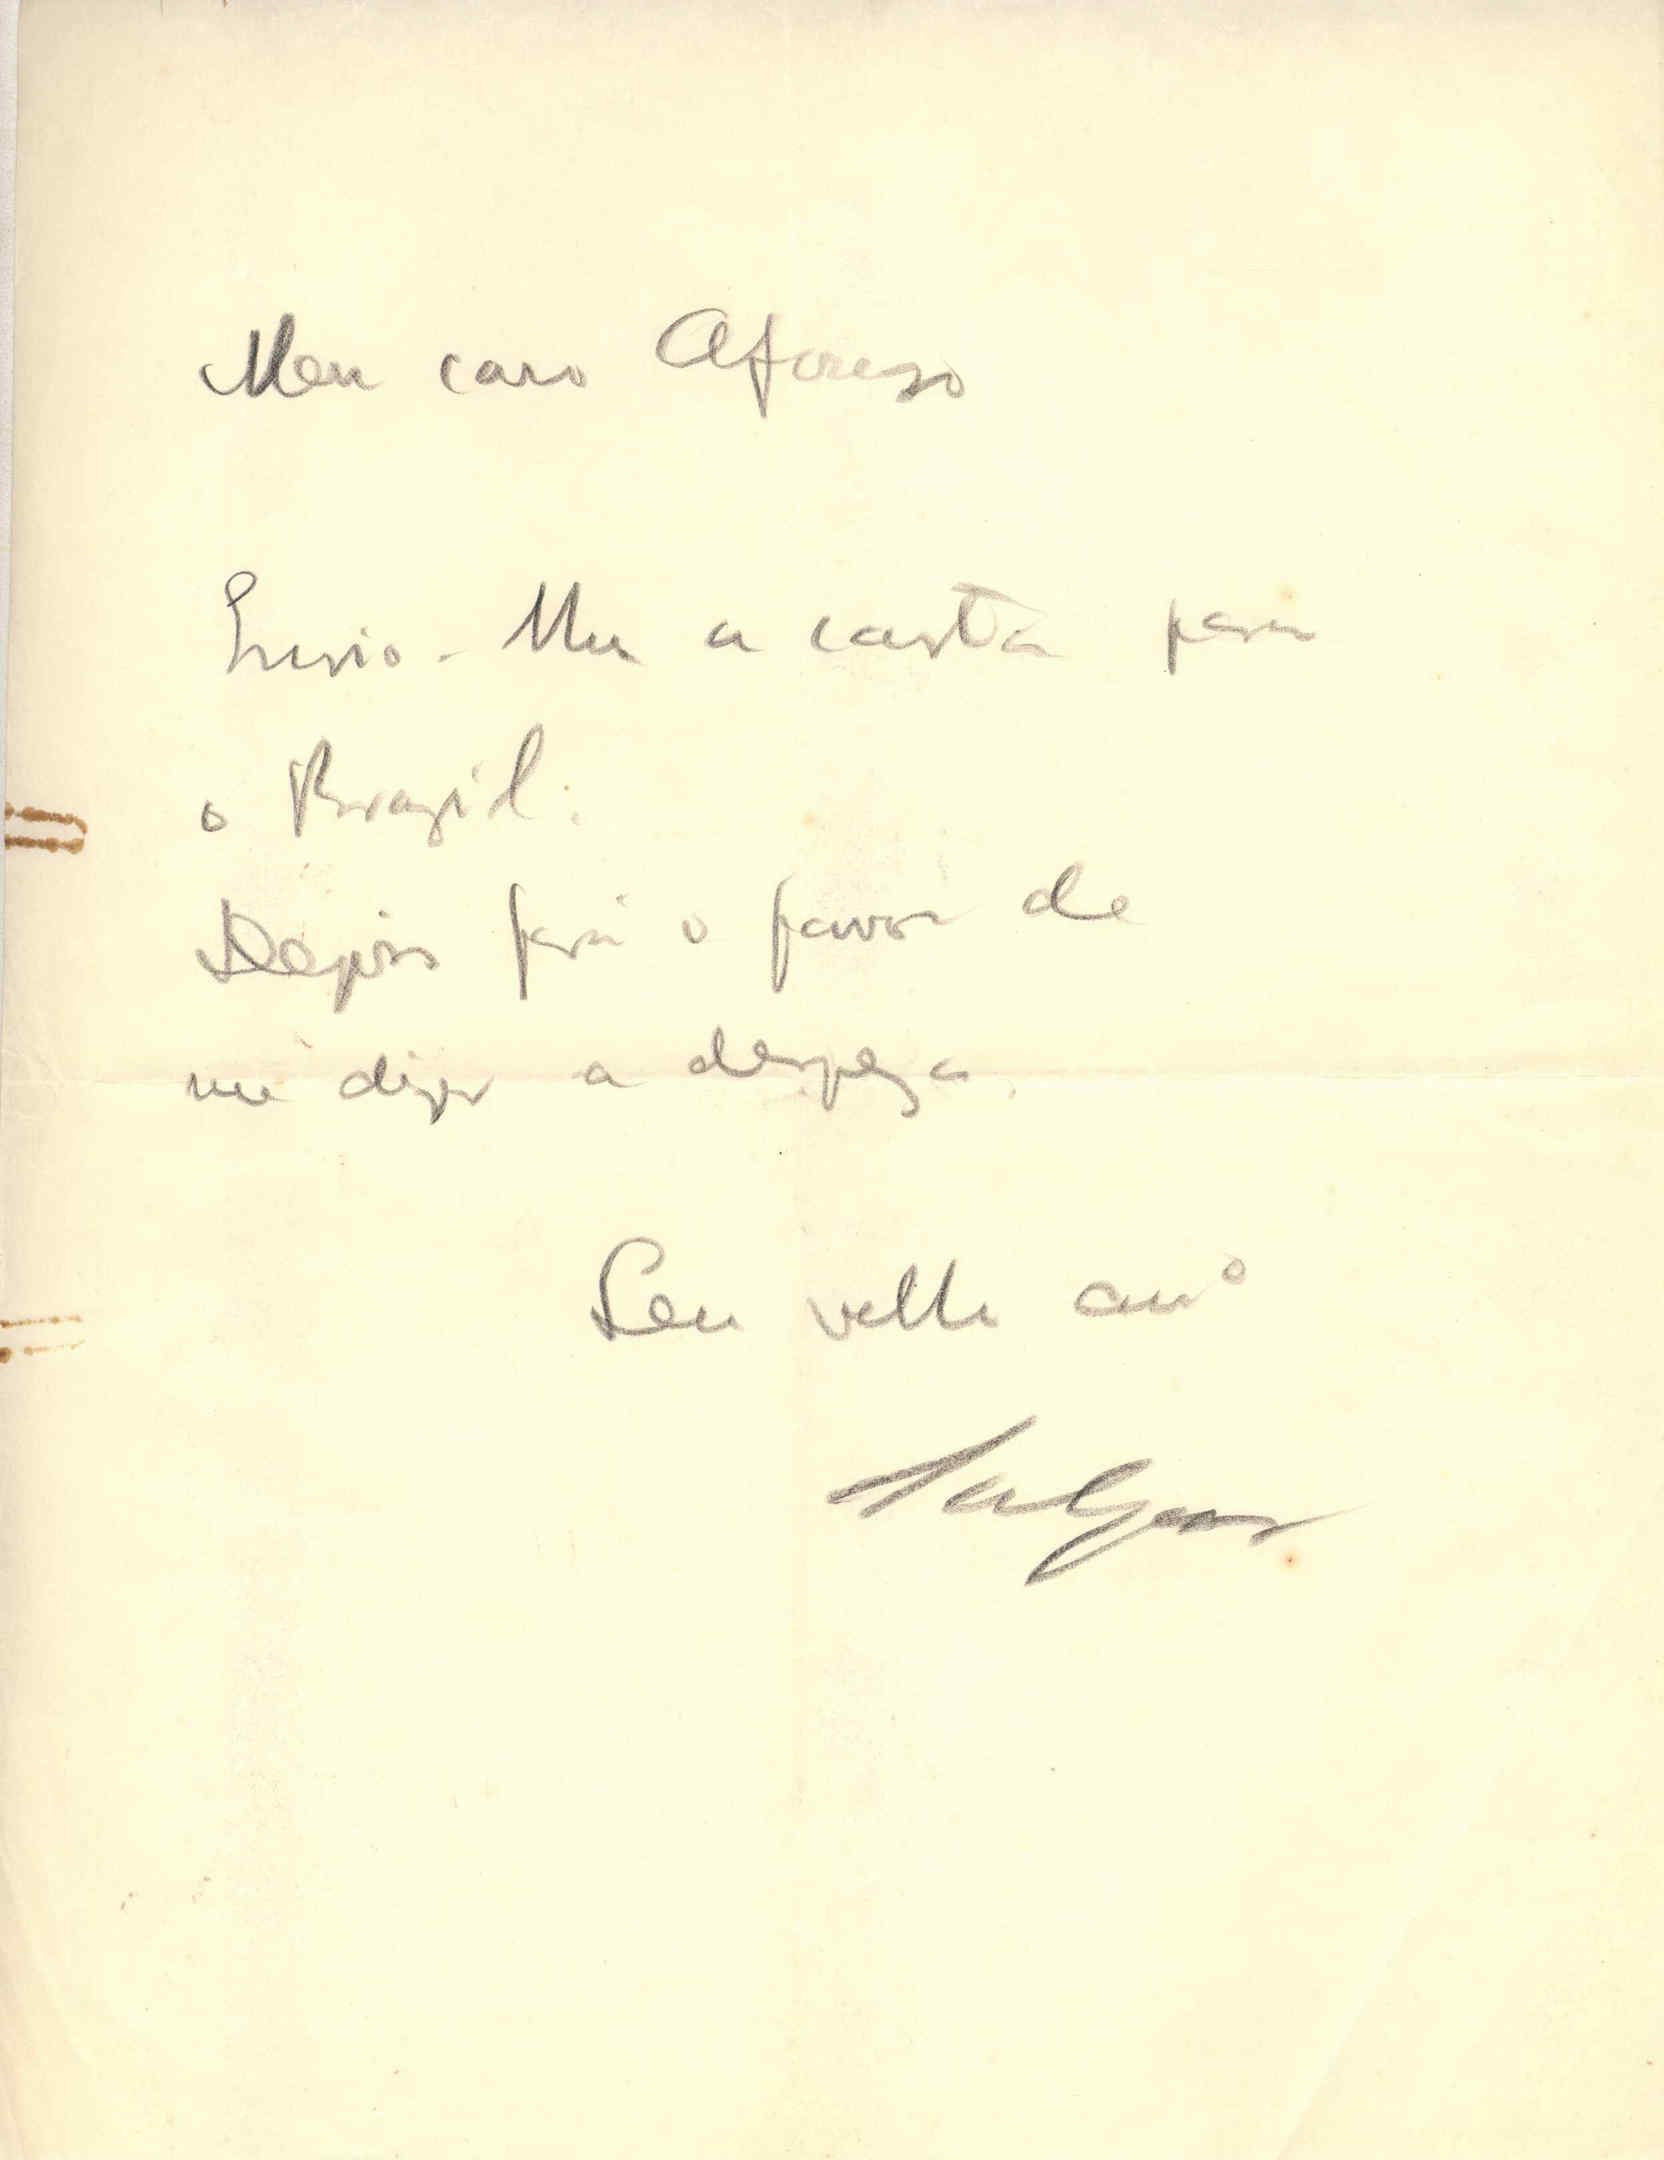 Meu caro Afonso
Envio-lhe a carta para
o Brazil.
Depois fará o favor de
me dizer a despeza.
Seu velho am.º